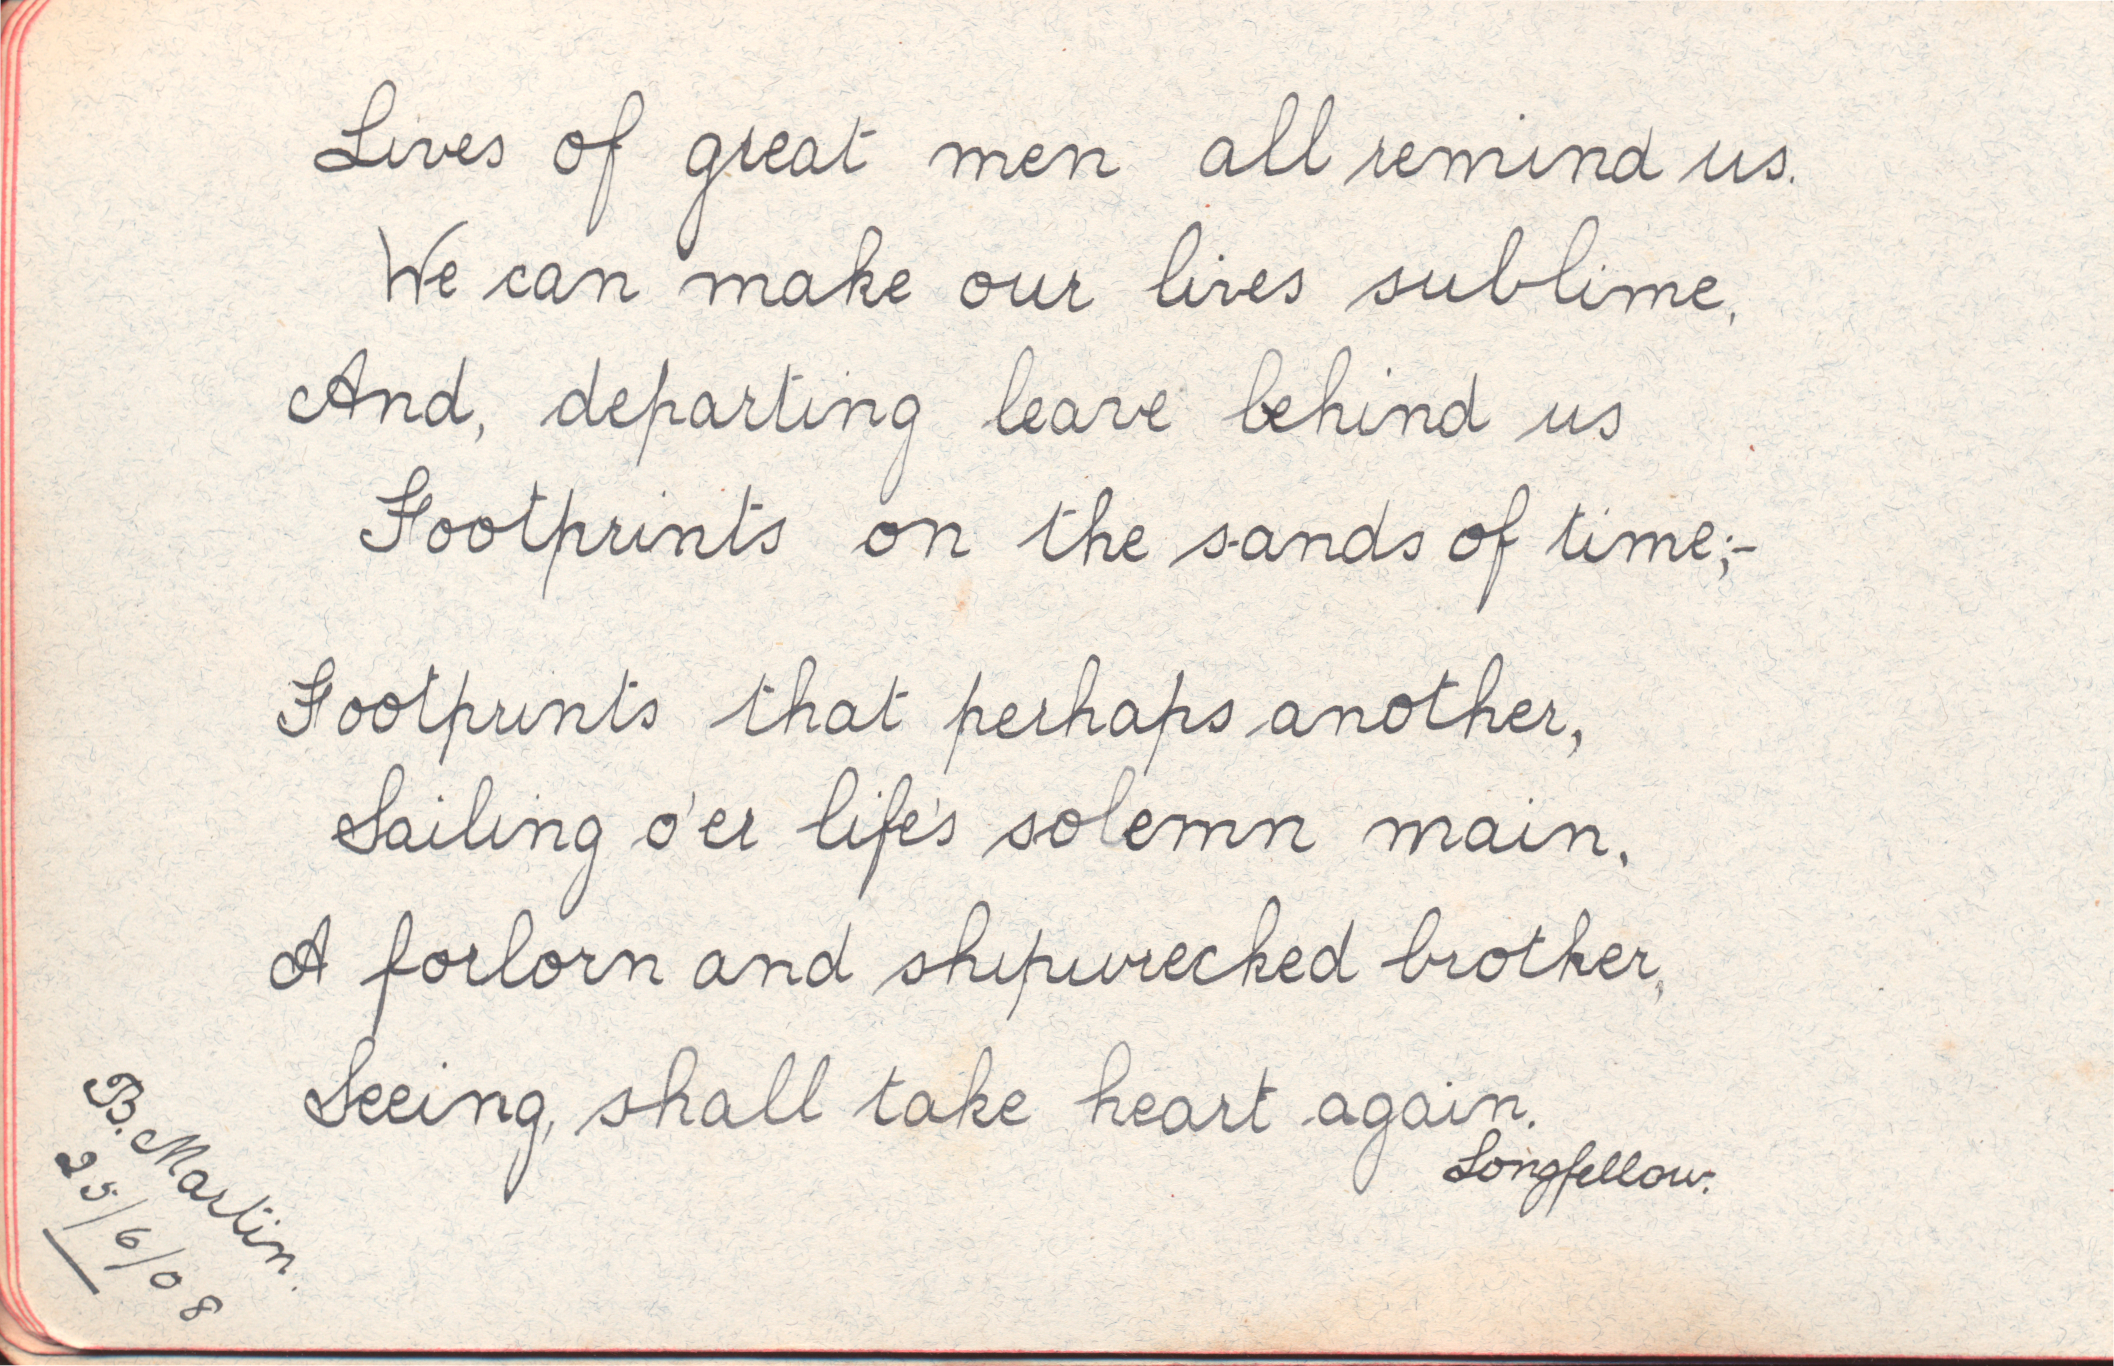 Lives of great men all remind us.
We can make our lives sublime,
And, departing leave behind us
Footprints on the sands of time;-
Footprints that perhaps another,
Sailing o'er life's solemn main,
A forlorn and shipwrecked brother,
Seeing, shall take heart again.
Longfellow.
B. Martin.
25/6/08